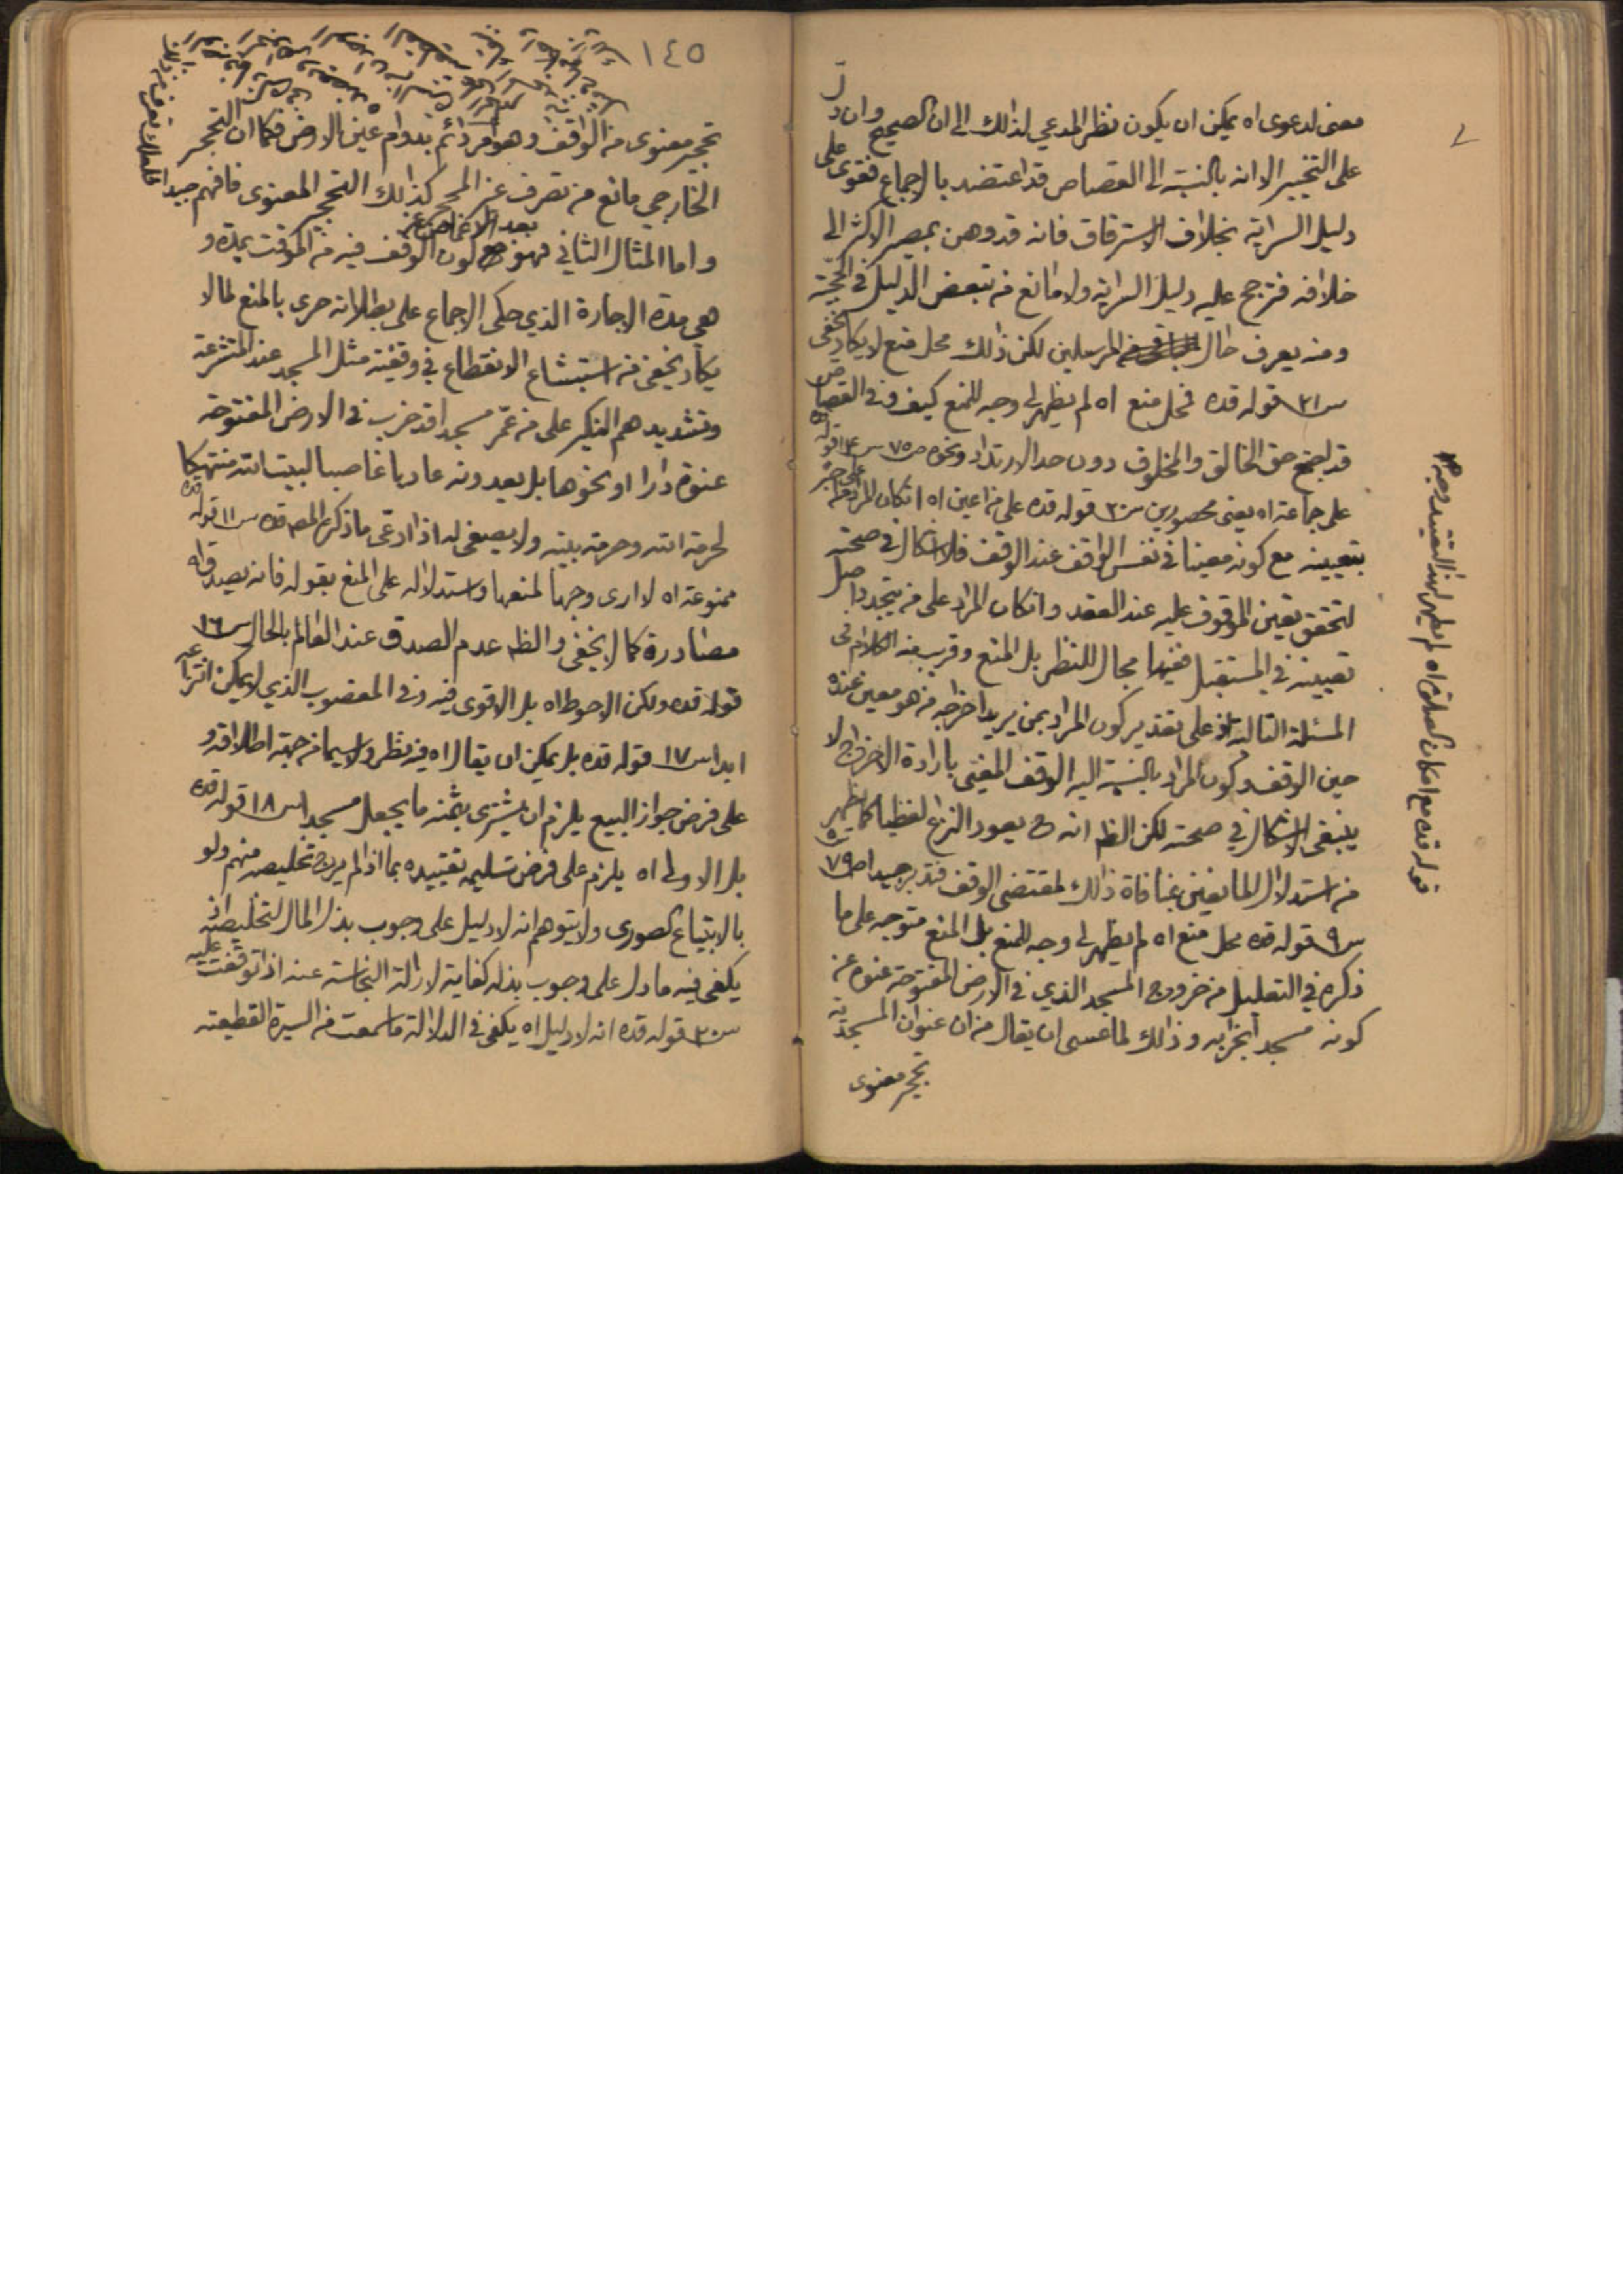 معنی لدعوی اه یمکن ان یکون نظر المدعی لذلك الی ان الصحیح وان دل
علی التخییر الا انه بالنسبة الی القصاص قد اعتضد بالاجماع فقوی علی
دلیل السرایة بخلاف الاسترقاق فانه قد وهن بمصیر الاکثر الی
خلافه فترجح علیه دلیل السرایة ولا مانع من تبعض الدلیل فی الحجیة
ومنه یعرف حال المرسلین لکن ذلك محل منع لا یکاد یخفی
س ٢١ قوله قده فمحل منع اه لم یظهر لی وجه للمنع کیف وفی القصاص
قد یجمع حق الخالق والمخلوق دون حد الارتداد ونحوه ص ٧٥ س ١٤ قوله قده
علی جماعة اه یعنی محصورین س ٢٠ قوله قده علی من اعین اه ان کان المراد
بتعیینه مع کونه معینا فی نفس الواقف عند الوقف فلا اشکال فی صحته
لتحقق تعین الموقوف علیه عند العقد وان کان المراد علی من یتجدد
تعیینه فی المستقبل ففیها مجال للنظر بل المنع وقریب منه الکلام فی
المسئلة التالیة اذ علی تقدیر کون المراد بمن یرید اخراجه من هو معین عنده
حین الوقف وکون المراد بالنسبة الیه الوقف المغیی بارادة الاخراج لا
ینبغی الاشکال فی صحته لکن الظ انه ح یعود النزاع لفظیا کما یظهر
من استدلال المانعین بمنافاة ذلك لمقتضی الوقف فتدبر جیدا ص ٧٩
س ٩ قوله قده محل منع اه لم یظهر لی وجه للمنع بل المنع متوجه علی ما
ذکره فی التعلیل من خروج المسجد الذی فی الارض المفتوحة عنوة عن
کونه مسجدا بخرابه وذلك لما عسی ان یقال من ان عنوان المسجدیة
تحجیر معنوی
قوله قده مع امکان اه لم یظهر لهذا التقیید وجه
١٤٥
تحجیر معنوی من الواقف وهو امر دائم بدوام عین الارض فکما ان التحجر
الخارجی مانع من تصرف غیر المحجر کذلك التحجیر المعنوی فافهم جیدا
بعد الاغماض عن
واما المثال الثانی فهو کون الوقف فیه من الموقت بمدة و
هی مدة الاجارة الذی حکی الاجماع علی بطلانه حری بالمنع لما لا
یکاد یخفی من استبشاع الانقطاع فی وقفیة مثل المسجد عند المتشرعة
وتشدیدهم النکیر علی من عمر مسجدا قد خرب فی الارض المفتوحة
عنوة دارا او نحوها بل یعدونه عادیا غاصبا لبیت الله منتهکا
لحرمة الله وحرمة بیته ولا یصغی له اذا ادعی ما ذکره المص قده س ١١ قوله قده
ممنوعة اه لا اری وجها لمنعها واستدلاله علی المنع بقوله فانه یصدق اه
مصادرة کما لا یخفی والظ عدم الصدق عند العالم بالحال س ١٦
قوله قده ولکن الاحوط اه بل الاقوی فیه وفی المغصوب الذی لا یمکن انتزاعه
ابدا س ١٧ قوله قده بل یمکن ان یقال اه فیه نظر ولا سیما من جهة اطلاقه و
علی فرض جواز البیع یلزم ان یشتری بثمنه ما یجعل مسجدا س ١٨ قوله قده
بل الاولی اه یلزم علی فرض تسلیمه تقییده بما اذا لم یرج تخلیصه منهم ولو
بالابتیاع الصوری ولا یتوهم انه لا دلیل علی وجوب بذل المال لتخلیصه اذ
یکفی فیه ما دل علی وجوب بذله کفایة لازالة النجاسة عنه اذا توقفت علیه
س ٢٠ قوله قده انه لا دلیل اه یکفی فی الدلالة ما سمعت من السیرة القطعیة